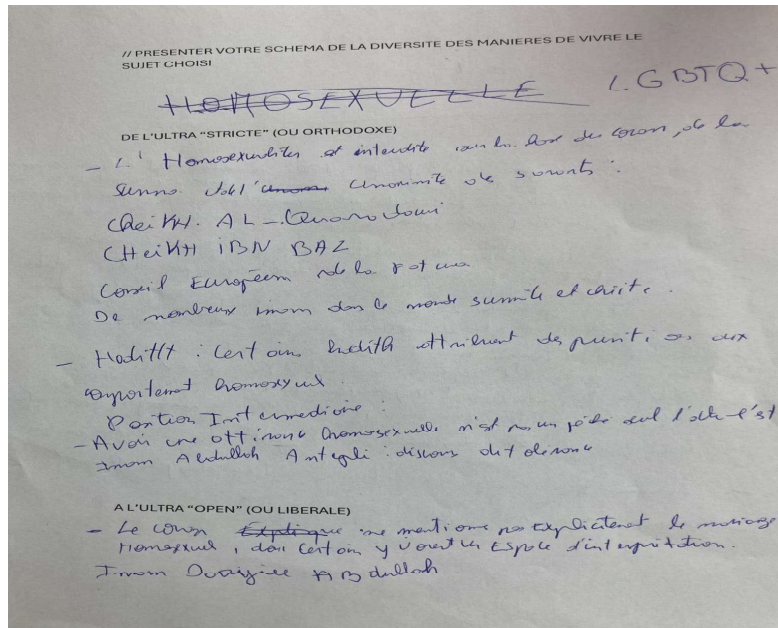 // PRESENTER VOTRE SCHEMA DE LA DIVERSITE DES MANIERES DE VIVRE LE
SUJET CHOISI
HOMOSEXUELLE LGBTQ+
DE L'ULTRA "STRICTE" (OU ORTHODOXE)
- L'Homosexualités est interdite sur la base du coran, de la
Sunna de l'unanimité de savants :
CHeiKH. AL-
CHeiKH iBN BAZ
Conseil Européen de la Fatwa
De nombreux imam dans le monde sunnite et chiite.
- HadiTH : certains hadith attribuent des punitions aux
comportement homosexuel.
Position Intermediaire :
- Avoir une attirance homosexuelle n'est pas un péché seul l'acte l'est
Imam Abdullah Antepli : discours de tolérance
A L'ULTRA "OPEN" (OU LIBERALE)
- Le coran Explique ne mentionne pas Explicitement le mariage
Homosexuel, donc certain y voient un Espace d'interprétation.
Imam Daayiee ABdullah